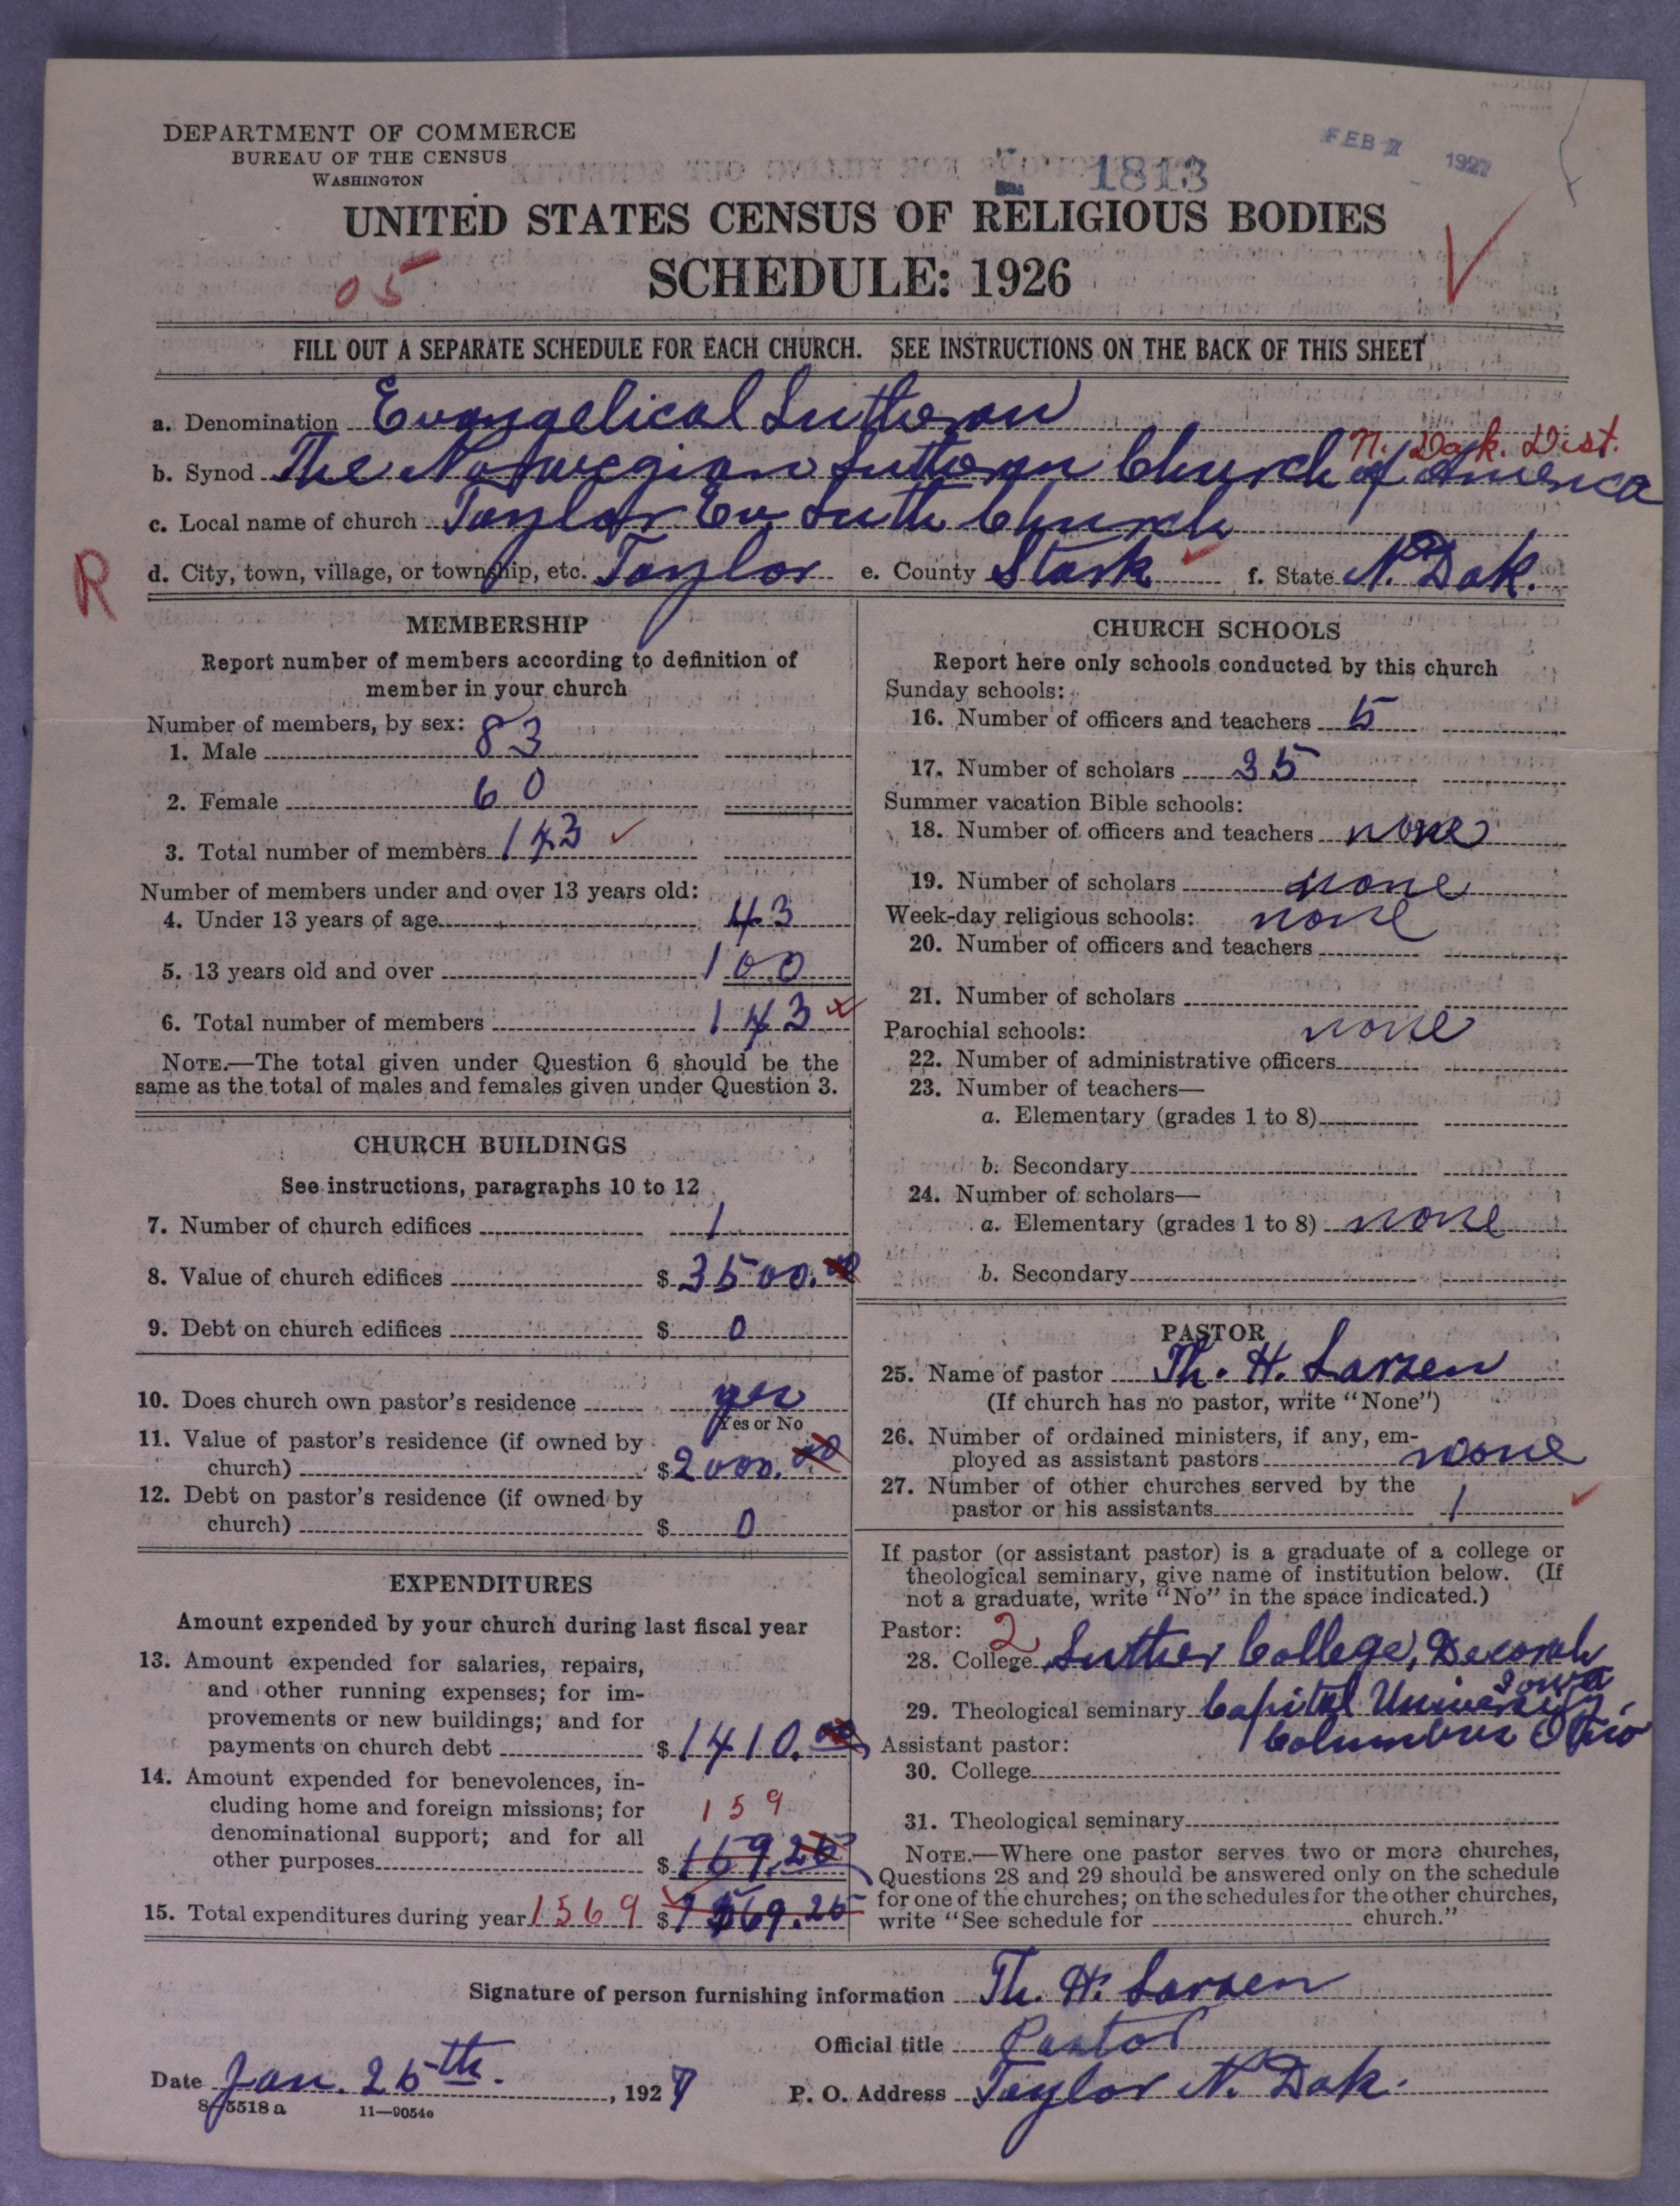 DEPARTMENT OF COMMERCE
BUREAU OF THE CENSUS
WASHINGTON
FEB 7 1927
1813
UNITED STATES CENSUS OF RELIGIOUS BODIES
SCHEDULE: 1926
05
FILL OUT A SEPARATE SCHEDULE FOR EACH CHURCH. SEE INSTRUCTIONS ON THE BACK OF THIS SHEET
a. Denomination Evangelical Lutheran
N. Dak. Dist.
b. Synod The Norwegian Lutheran Church of America
c. Local name of church Taylor Ev Luth Church
R
d. City, town, village, or township, etc. Taylor e. County Stark f. State N. Dak.
MEMBERSHIP
Report number of members according to definition of
member in your church
Number of members, by sex:
1. Male 83
2. Female 60
3. Total number of members 143
Number of members under and over 13 years old:
4. Under 13 years of age 43
5. 13 years old and over 100
6. Total number of members 143
NOTE.—The total given under Question 6 should be the
same as the total of males and females given under Question 3.
CHURCH BUILDINGS
See instructions, paragraphs 10 to 12
7. Number of church edifices 1
8. Value of church edifices $ 3500.00
9. Debt on church edifices $ 0
10. Does church own pastor's residence yes
Yes or No
11. Value of pastor's residence (if owned by
church) $ 2000.00
12. Debt on pastor's residence (if owned by
church) $ 0
EXPENDITURES
Amount expended by your church during last fiscal year
13. Amount expended for salaries, repairs,
and other running expenses; for im-
provements or new buildings; and for
payments on church debt $ 1410.00
14. Amount expended for benevolences, in-
cluding home and foreign missions; for
denominational support; and for all
159
other purposes $ 159.25
15. Total expenditures during year 1569 $ 1569.25
CHURCH SCHOOLS
Report here only schools conducted by this church
Sunday schools:
16. Number of officers and teachers 5
17. Number of scholars 35
Summer vacation Bible schools:
18. Number of officers and teachers none
19. Number of scholars none
Week-day religious schools: none
20. Number of officers and teachers
21. Number of scholars
Parochial schools: none
22. Number of administrative officers
23. Number of teachers—
a. Elementary (grades 1 to 8)
b. Secondary
24. Number of scholars—
a. Elementary (grades 1 to 8) none
b. Secondary
PASTOR
25. Name of pastor Th. H. Larsen
(If church has no pastor, write "None")
26. Number of ordained ministers, if any, em-
ployed as assistant pastors none
27. Number of other churches served by the
pastor or his assistants 1
If pastor (or assistant pastor) is a graduate of a college or
theological seminary, give name of institution below. (If
not a graduate, write "No" in the space indicated.)
Pastor: 2
28. College Luther College, Decorah
Iowa
29. Theological seminary Capital University
Columbus Ohio
Assistant pastor:
30. College
31. Theological seminary
NOTE.—Where one pastor serves two or more churches,
Questions 28 and 29 should be answered only on the schedule
for one of the churches; on the schedules for the other churches,
write "See schedule for church."
Signature of person furnishing information Th. H. Larsen
Official title Pastor
Date Jan. 25th. , 1927 P. O. Address Taylor N. Dak.
8-5518a 11—9054e